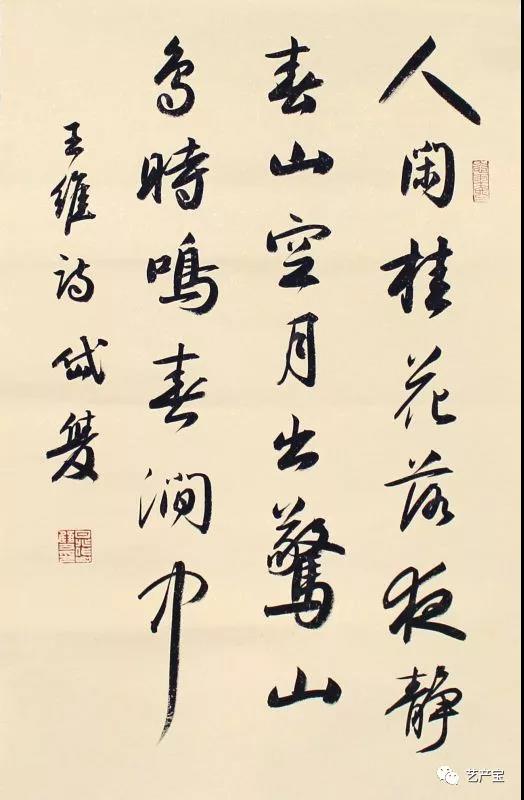 人閑桂花落夜静
春山空月出驚山
鳥時鳴春澗中
王維詩 岱雙
艺产宝